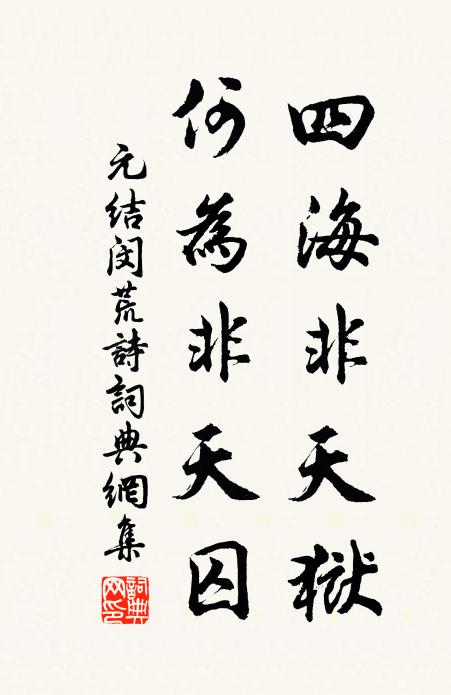 四海非天獄
何為非天囚
元结闵荒詩詞典網集
詞典網印